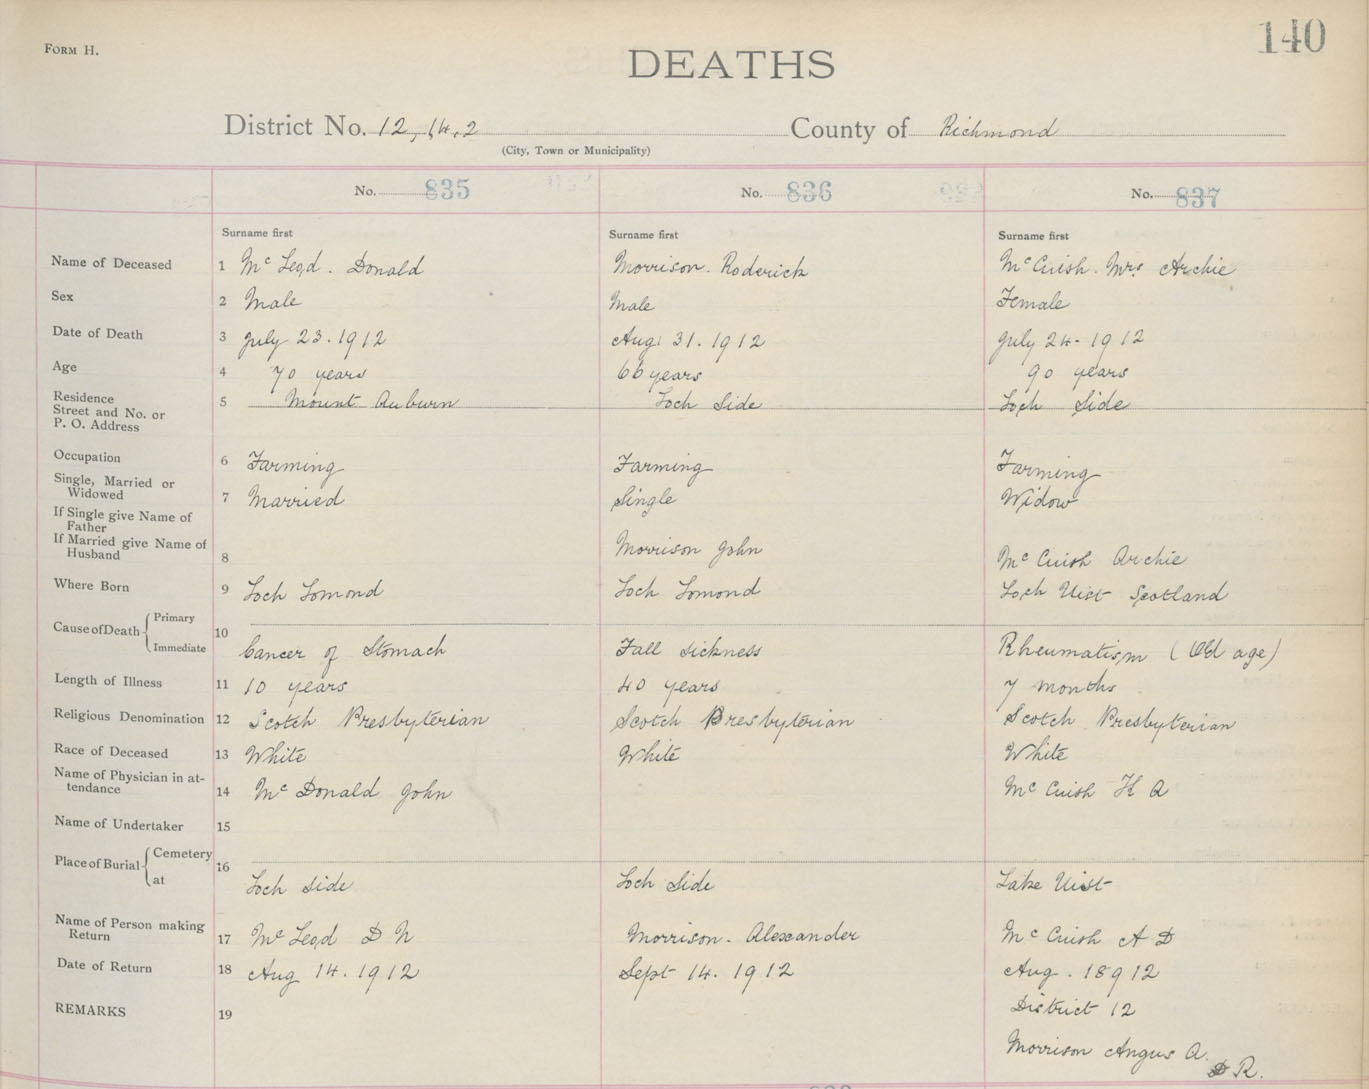 FORM H.
140
DEATHS
District No. 12, 14, 2 County of Richmond
(City, Town or Municipality)
No. 835 No. 836 No. 837
Surname first Surname first Surname first
Name of Deceased 1 Mc Leod. Donald Morrison. Roderick Mc Cuish. Mrs Archie
Sex 2 Male Male Female
Date of Death 3 July 23. 1912 Aug 31. 1912 July 24. 1912
Age 4 70 years 66 years 90 years
Residence
Street and No. or
P. O. Address 5 Mount Auburn Loch Side Loch Side
Occupation 6 Farming Farming Farming
Single, Married or
Widowed 7 Married Single Widow
If Single give Name of
Father
If Married give Name of
Husband 8 Morrison John Mc Cuish Archie
Where Born 9 Loch Lomond Loch Lomond Loch Uist Scotland
Cause of Death Primary
Immediate 10 Cancer of Stomach Fall Sickness Rheumatism (Old age)
Length of Illness 11 10 years 40 years 7 months
Religious Denomination 12 Scotch Presbyterian Scotch Presbyterian Scotch Presbyterian
Race of Deceased 13 White White White
Name of Physician in at-
tendance 14 Mc Donald John Mc Cuish H A
Name of Undertaker 15
Place of Burial Cemetery
at 16 Loch Side Loch Side Lake Uist
Name of Person making
Return 17 Mc Leod D N Morrison. Alexander Mc Cuish A D
Date of Return 18 Aug 14. 1912 Sept 14. 1912 Aug. 18912
REMARKS 19 District 12
Morrison Angus A.
D R.